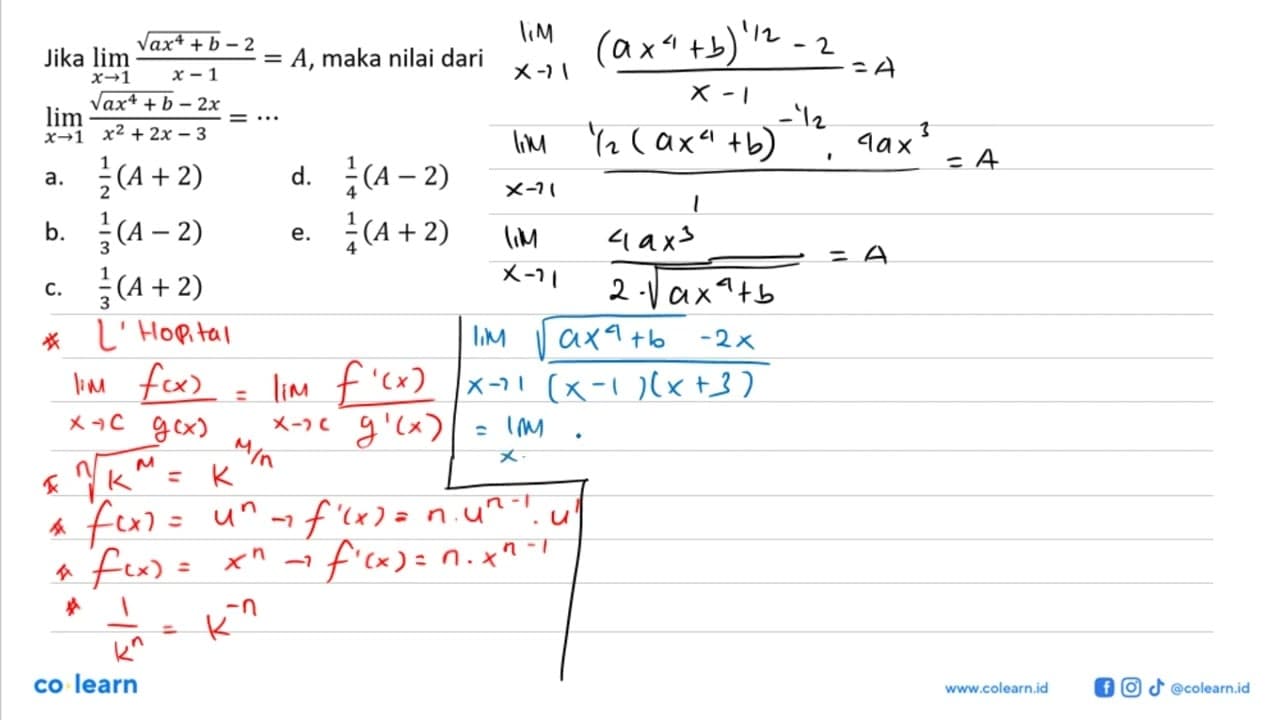 Jika lim x→1 (√(ax⁴ + b) − 2)/(x − 1) = A, maka nilai dari
lim x→1 (√(ax⁴ + b) − 2x)/(x² + 2x − 3) = ⋯
a. 1/2 (A + 2) d. 1/4 (A − 2)
b. 1/3 (A − 2) e. 1/4 (A + 2)
c. 1/3 (A + 2)
lim x→1 ((ax⁴ + b)^(1/2) − 2)/(x − 1) = A
lim x→1 (1/2 (ax⁴ + b)^(−1/2) . 4ax³)/1 = A
lim x→1 4ax³/(2 · √(ax⁴ + b)) = A
* L' Hopital
lim x→c f(x)/g(x) = lim x→c f'(x)/g'(x)
* ⁿ√(k^m) = k^(m/n)
* f(x) = uⁿ → f'(x) = n . u^(n−1) . u'
* f(x) = xⁿ → f'(x) = n . x^(n−1)
* 1/kⁿ = k^(−n)
lim x→1 (√(ax⁴ + b) − 2x)/((x − 1)(x + 3))
= lim x .
co learn
www.colearn.id @colearn.id